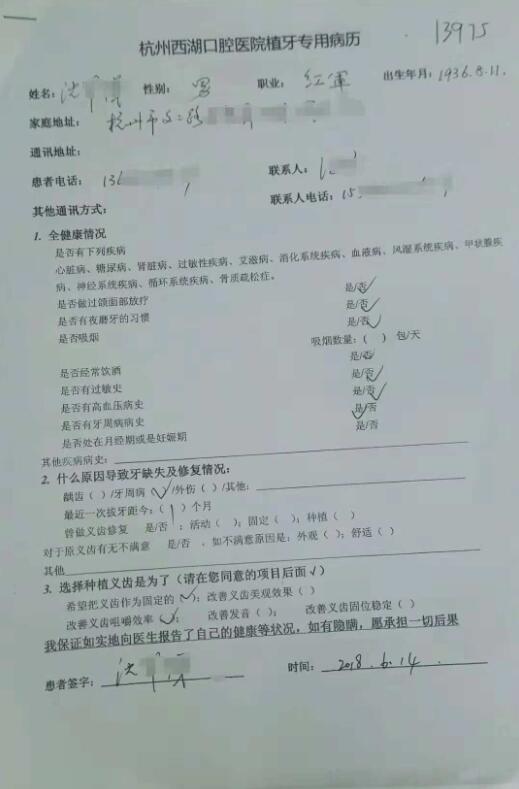 13975
杭州西湖口腔医院植牙专用病历
姓名：沈 性别：男 职业：红军 出生年月：1936.8.11.
家庭地址：杭州市文二路
通讯地址：
患者电话：13 联系人：
其他通讯方式： 联系人电话：15
1. 全健康情况
是否有下列疾病
心脏病、糖尿病、肾脏病、过敏性疾病、艾滋病、消化系统疾病、血液病、风湿系统疾病、甲状腺疾
病、神经系统疾病、循环系统疾病、骨质疏松症。 是/否
是否做过颌面部放疗 是/否✓
是否有夜磨牙的习惯 是/否✓
是否吸烟 吸烟数量：（ ）包/天
是/否
是否经常饮酒 是/否✓
是否有过敏史 是/否✓
是否有高血压病史 是/否
是否有牙周病病史 是/否
是否处在月经期或是妊娠期
其他疾病病史：
2. 什么原因导致牙缺失及修复情况：
龋齿（ ）/牙周病（✓）/外伤（ ）/其他：
最近一次拔牙距今：（1）个月
曾做义齿修复 是/否 ：活动（ ）；固定（ ）；种植（ ）
对于原义齿有无不满意 是/否 ，如不满意原因是：外观（ ）；舒适（ ）
其他
3. 选择种植义齿是为了（请在您同意的项目后面√）
希望把义齿作为固定的（✓）；改善义齿美观效果（ ）
改善义齿咀嚼效率（✓）； 改善发音（ ）； 改善义齿固位稳定（ ）
我保证如实地向医生报告了自己的健康等状况，如有隐瞒，愿承担一切后果
患者签字：沈 时间：2018.6.14